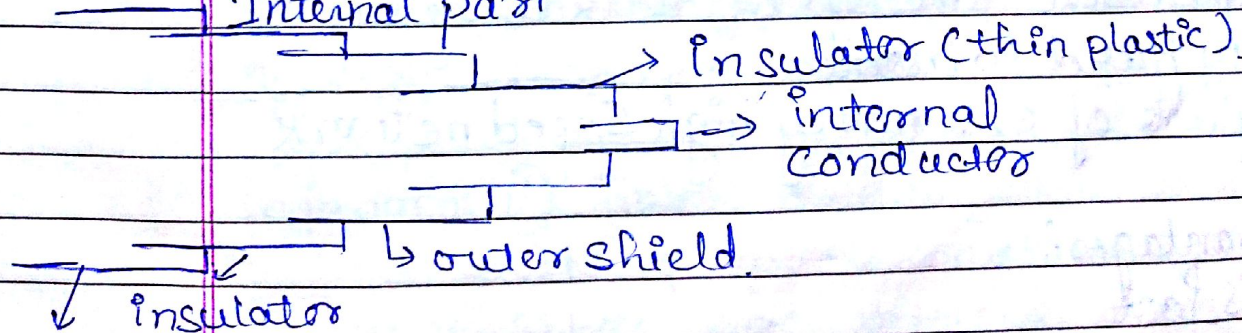 Internal part
insulator (thin plastic).
internal
conductor
outer shield.
insulator